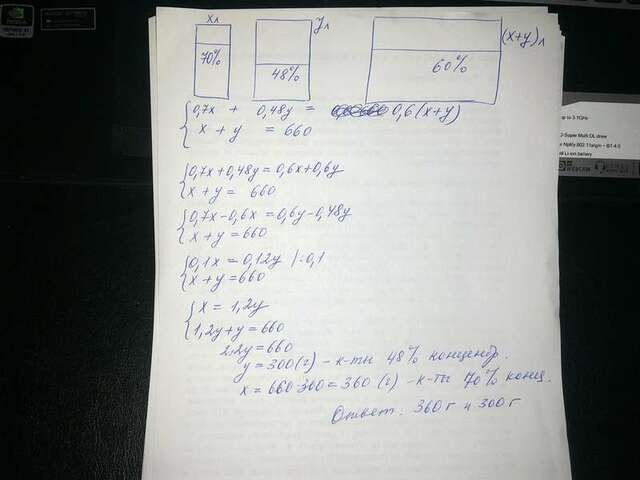 xл
yл
(x+y)л
70%
48%
60%
0,7x + 0,48y = 0,6(x+y)
x + y = 660
0,7x+0,48y=0,6x+0,6y
x+y= 660
0,7x-0,6x = 0,6y-0,48y
x+y=660
0,1x=0,12y |:0,1
x+y=660
x = 1,2y
1,2y+y=660
2,2y=660
y=300(г) - к-ты 48% концентр.
x=660-300=360(г) - к-ты 70% конц.
Ответ: 360г и 300г
up to 3.1GHz